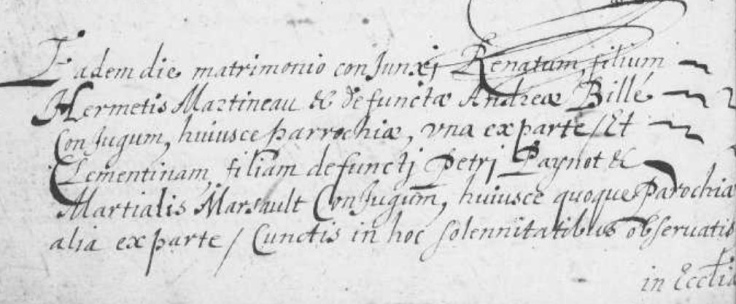 Eadem die matrimonio conjunxj Renatum, filium
Hermetis Martineau & defunctæ Andreæ Billé
Conjugum, huiusce parrochiæ, vna ex parte / Et
Clementinam, filiam defunctj Petrj Paynot &
Martialis Marsault Conjugum, huiusce quoque Parochiæ
alia ex parte / Cunctis in hoc solennitatibus observatis
in Ecclia